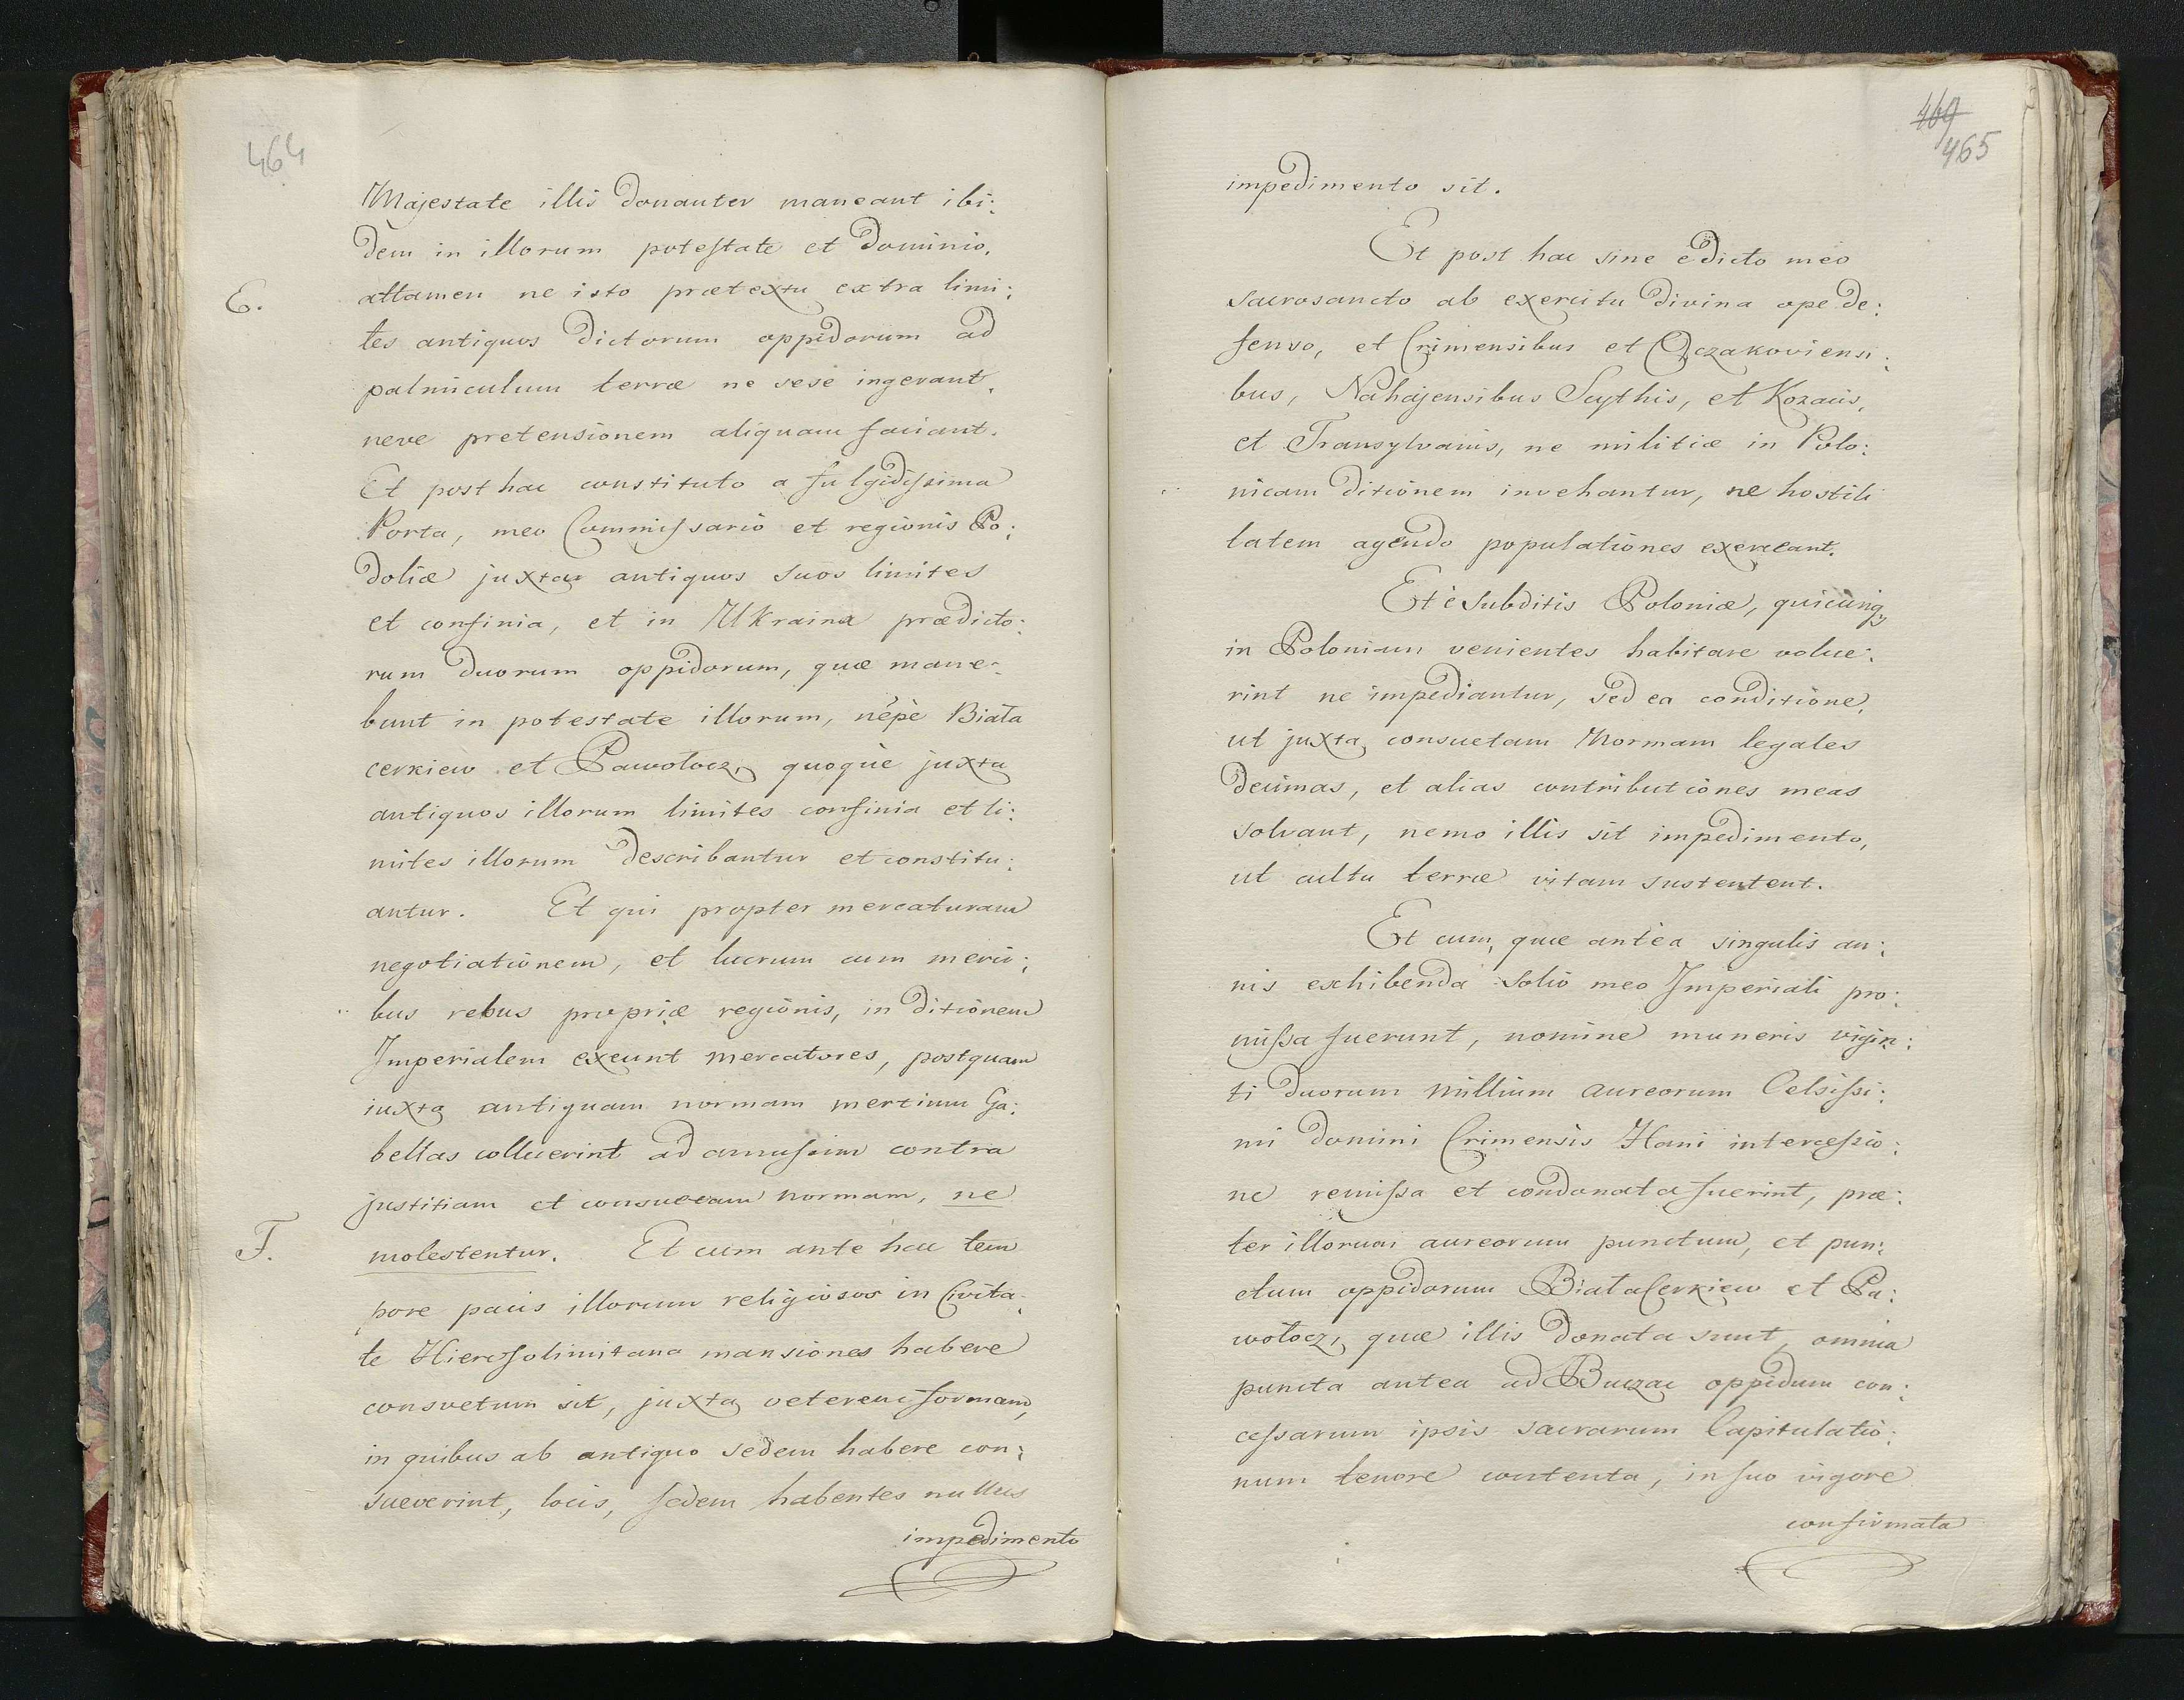 464
Majestate illis donanter maneant ibi:
dem in illorum potestate et dominio.
E.
attamen ne isto prætextu extra limi:
tes antiquos dictorum oppidorum ad
palmiculum terræ ne sese ingerant,
neve pretensionem aliquam faciant.
Et post hac constituto a fulgidissima
Porta, meo Commissario et regionis Po:
doliæ juxta antiquos suos limites
et confinia, et in Ukraina prædicto:
rum duorum oppidorum, quæ mane:
bunt in potestate illorum, nẽpè Biała
cerkiew et Pawołocz, quoquè juxta
antiquos illorum limites confinia et li:
mites illorum describantur et constitu:
antur. Et qui propter mercaturam
negotiationem, et lucrum cum merci:
bus rebus propriæ regionis, in ditionem
Imperialem exeunt mercatores, postquam
iuxta antiquam normam mertium Ga:
bellas colluerint ad amussim contra
justitiam et consuetam normam, ne
F.
molestentur. Et cum ante hac tem
pore pacis illorum religiosos in Civita:
te Hierosolimitana mansiones habere
consvetum sit, juxta veterem formam,
in quibus ab antiquo sedem habere con:
sueverint, locis, sedem habentes nullus
impedimento
469
465
impedimento sit.
Et post hac sine edicto meo
sacrosancto ab exercitu divina ope de:
fenso, et Crimensibus et Oczakoviensi:
bus, Nahajensibus Scythis, et Kozacis,
et Transylvanis, ne militiæ in Polo:
nicam ditionem invehantur, ne hostili
tatem agendo populationes exerceant.
Et è subditis Poloniæ, quicunq;
in Poloniam venientes habitare volue:
rint ne impediantur, sed ea conditione,
ut juxta consuetam Normam legales
decimas, et alias contributiones meas
solvant, nemo illis sit impedimento,
ut cultu terræ vitam sustentent.
Et cum, quæ antea singulis an:
nis exhibenda solio meo Imperiali pro:
missa fuerunt, nomine muneris vigin:
ti duorum millium aureorum Celsissi:
mi domini Crimensis Hani intercessio:
ne remissa et condonata fuerint, præ:
ter illorum aureorum punctum, et pun:
ctum oppidorum BiałaCerkiew et Pa:
wołocz, quæ illis donata sunt, omnia
puncta antea ad Buczac oppidum con:
cessarum ipsis sacrarum Capitulatio:
num tenore contenta, in suo vigore
confirmata